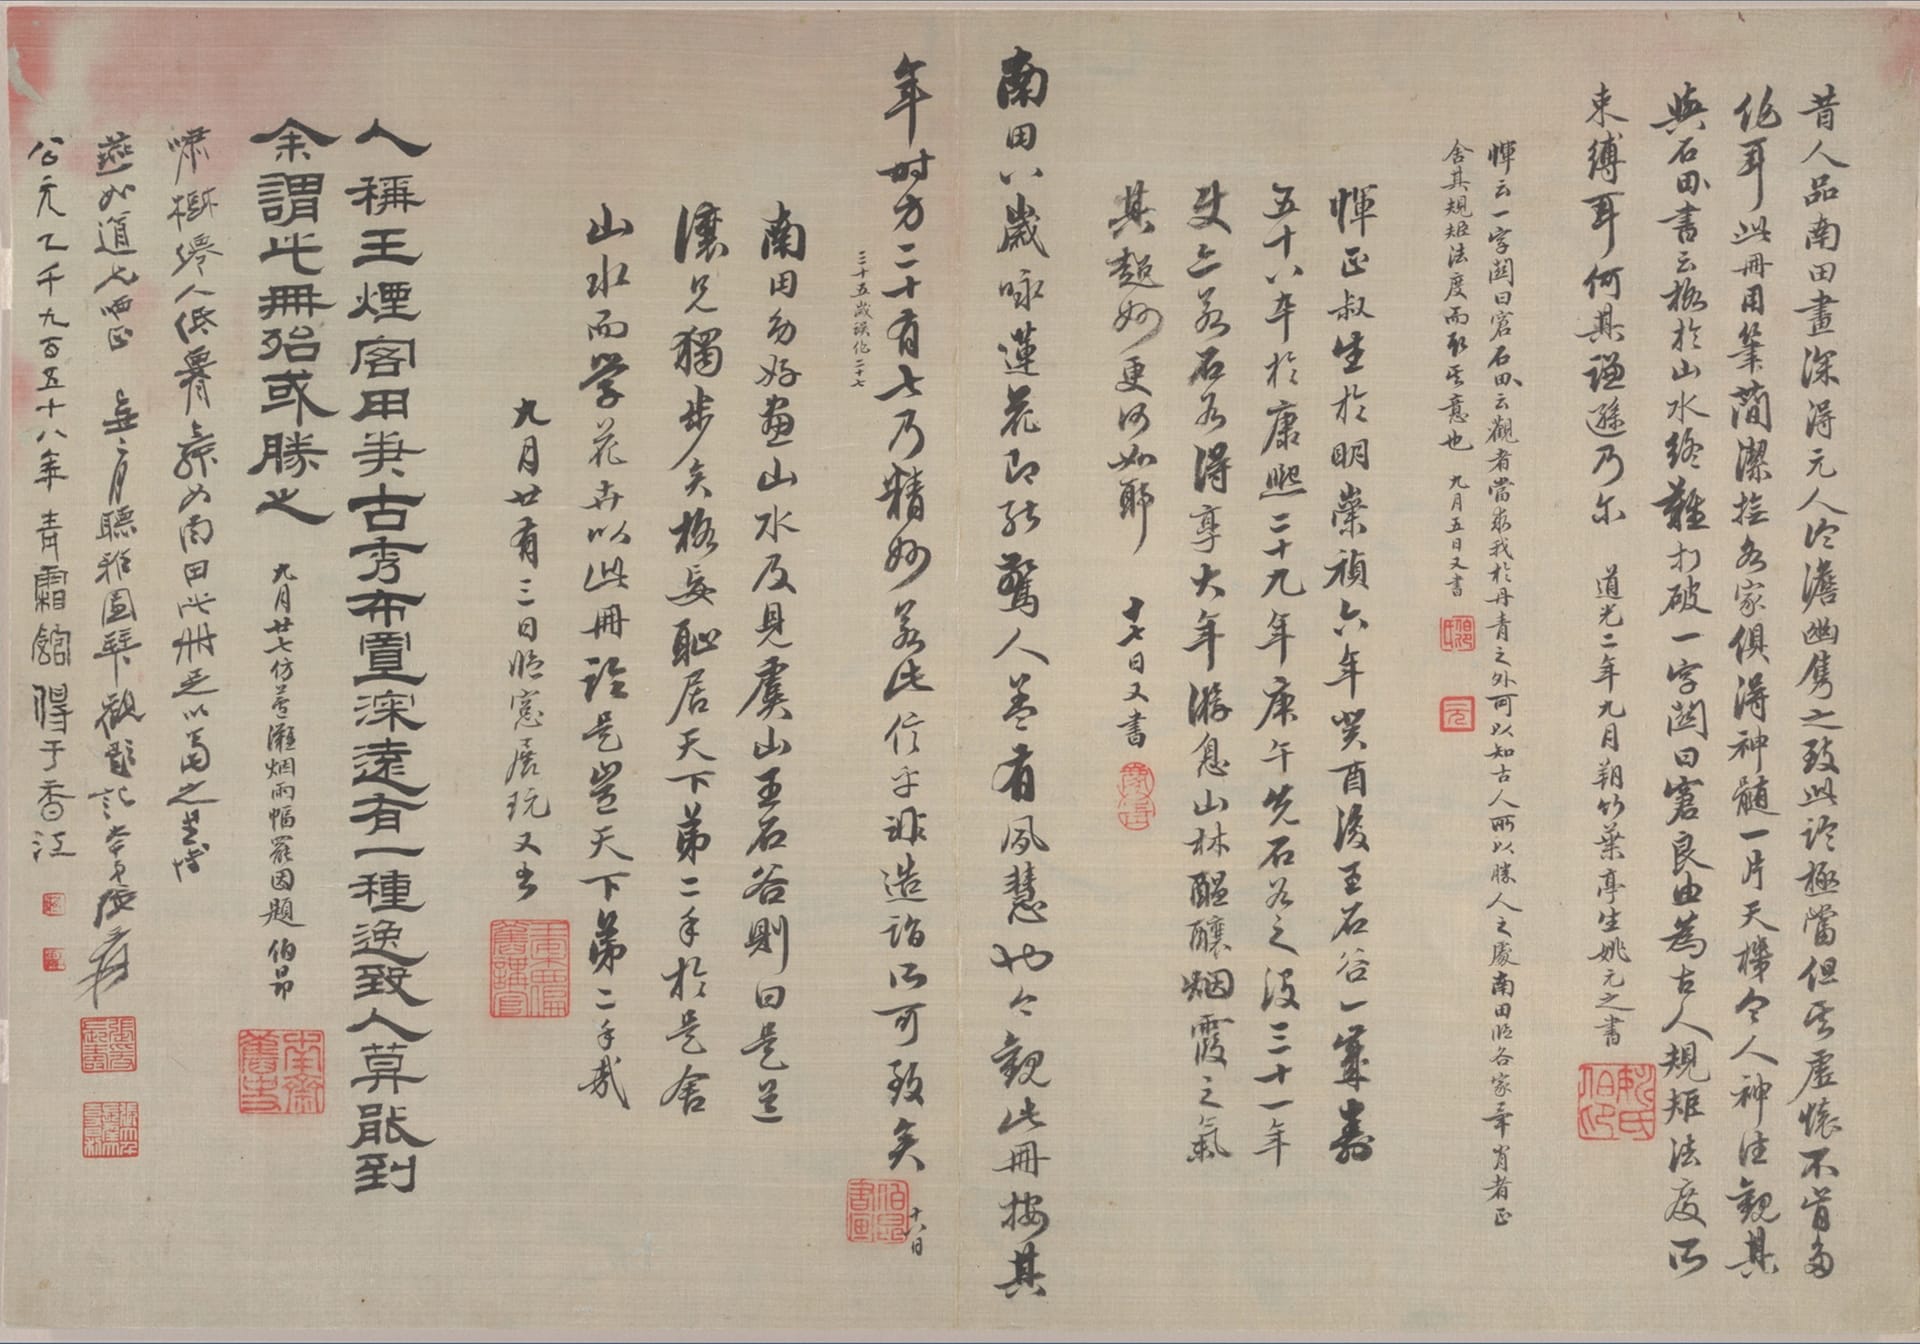 昔人品南田畫深得元人冷澹幽雋之致此論極當但其虛懷不肯多
作耳此冊用筆簡潔撫各家俱得神髓一片天機令人神往觀其
與石田書云格於山水終難打破一字關曰窘良由為古人規矩法度所
束縛耳何其謙遜乃爾 道光二年九月朔竹葉亭生姚元之書
惲云一字關曰窘石田云觀者當求我於丹青之外可以知古人所以勝人之處南田臨各家畢肖者正
舍其規矩法度而取其意也 九月五日又書
惲正叔生於明崇禎六年癸酉後王石谷一歲壽
五十八卒於康熙二十九年庚午先石谷之沒三十一年
使亦若石谷得享大年游息山林醞釀烟霞之氣
其超妙更何如耶 十七日又書
南田八歲咏蓮花即能驚人蓋有夙慧也今觀此冊按其
年時方二十有七乃精妙若此信乎非造詣所可致矣 十八日
三十五歲誤作二十七
南田幼好畫山水及見虞山王石谷則曰是道
讓兄獨步矣格妄恥居天下第二手於是舍
山水而學花卉以此冊論是豈天下第二手哉
九月廿有三日臨窗展玩又書
人稱王煙客用筆古秀布置深遠有一種逸致人莫能到
余謂此冊殆或勝之 九月廿七仿苕灘烟雨幅罷因題 伯昂
嘯樹 人低 南田此冊足以當之
燕如道兄 正 聽 圖 觀題記 爰
公元乙千九百五十八年 青霜館得于香江